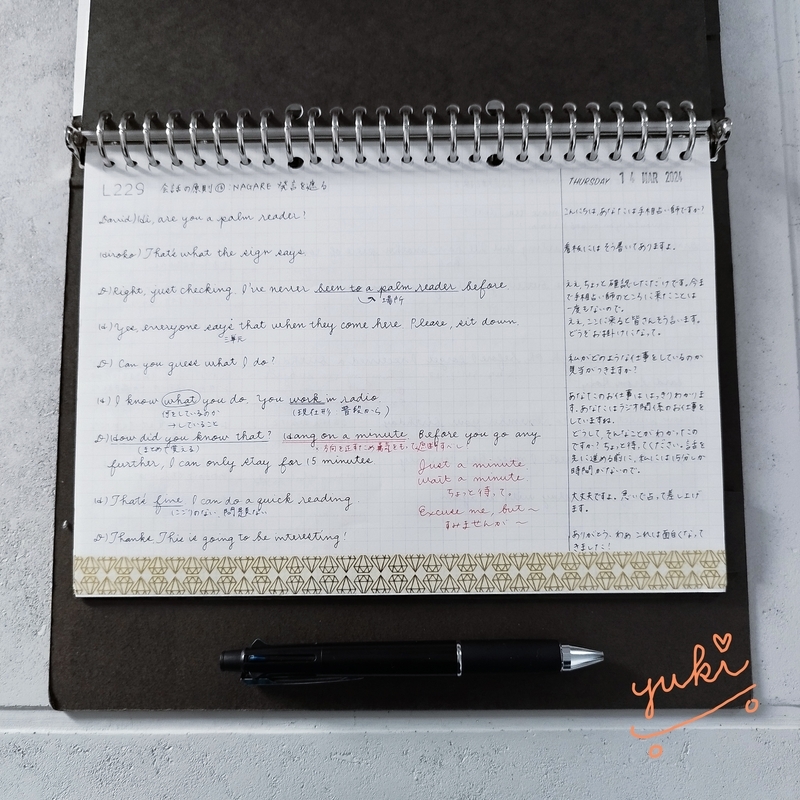 L229 会話の原則④:NAGARE 発言を遮る
THURSDAY 14 MAR 2024
David) Hi, are you a palm reader?
こんにちは、あなたは手相占い師ですか?
Hiroko) That's what the sign says.
看板にはそう書いてありますよ。
D) Right, just checking. I've never been to a palm reader before.
場所
ええ、ちょっと確認しただけです。今ま
で手相占い師のところに来たことは
一度もないので。
H) Yes, everyone says that when they come here. Please, sit down.
三単元
ええ、ここに来ると皆さんそう言います。
どうぞお掛けになって。
D) Can you guess what I do?
私がどのような仕事をしているのか
見当がつきますか?
H) I know what you do. You work in radio.
何をしているのか
→していること
(現在形 普段から)
あなたのお仕事ははっきりわかりま
す。あなたはラジオ関係のお仕事を
していますね。
D) How did you know that? Hang on a minute. Before you go any
(まとめて覚える)
further, I can only stay for 15 minutes.
どうして、そんなことがわかったの
ですか?ちょっと待ってください。話を
先に進める前に、私には15分しか
時間がないので。
Just a minute
wait a minute
ちょっと待って。
Excuse me, but~
すみませんが~
H) That's fine. I can do a quick reading.
問題ない
大丈夫ですよ。急いで占って差し上げ
ます。
D) Thanks. This is going to be interesting!
ありがとう。わぁ これは面白くなって
きました!
yuki